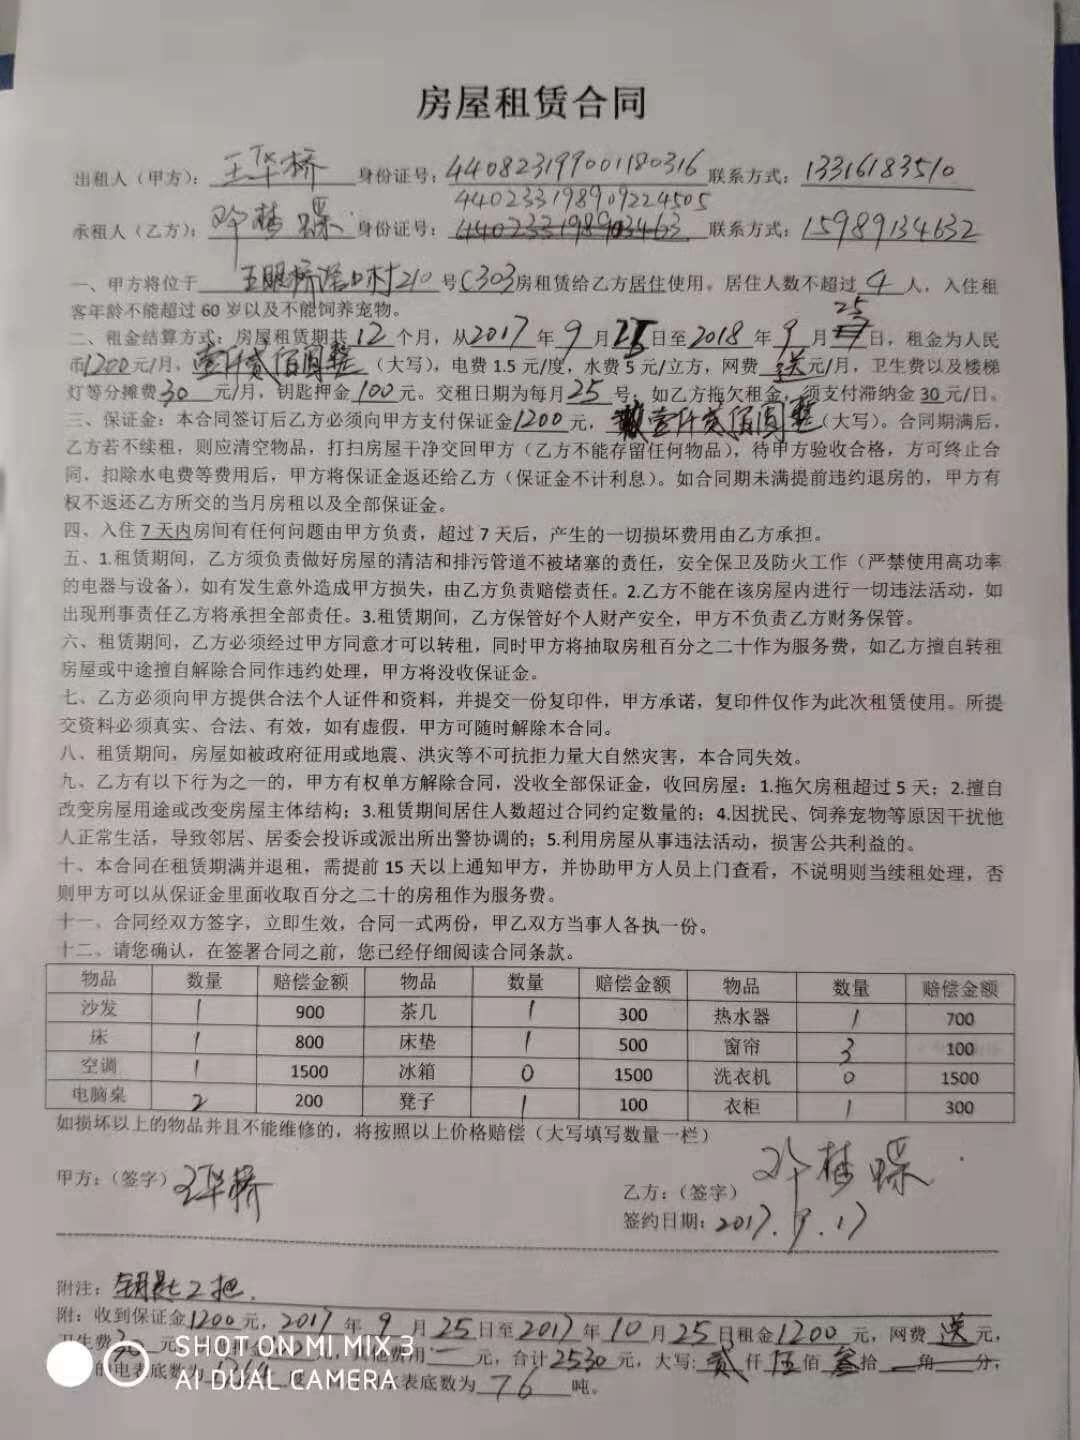 房屋租赁合同
出租人（甲方）：王华桥 身份证号：440823199001180316 联系方式：13316183510
440233198909224505
承租人（乙方）： 身份证号： 联系方式：15989134632
一、甲方将位于 村210 号C303房租赁给乙方居住使用。居住人数不超过 4 人，入住租
客年龄不能超过 60 岁以及不能饲养宠物。
25
二、租金结算方式：房屋租赁期共 12 个月，从2017 年 9 月 日至 2018 年 9 月 日，租金为人民
币1200元/月，壹仟贰佰圆整（大写），电费 1.5 元/度，水费 5 元/立方，网费 送 元/月，卫生费以及楼梯
灯等分摊费30 元/月，钥匙押金 100 元。交租日期为每月 25 号，如乙方拖欠租金，须支付滞纳金 30 元/日。
三、保证金：本合同签订后乙方必须向甲方支付保证金1200元，壹仟贰佰圆整（大写）。合同期满后，
乙方若不续租，则应清空物品，打扫房屋干净交回甲方（乙方不能存留任何物品），待甲方验收合格，方可终止合
同，扣除水电费等费用后，甲方将保证金返还给乙方（保证金不计利息）。如合同期未满提前违约退房的，甲方有
权不返还乙方所交的当月房租以及全部保证金。
四、入住 7 天内房间有任何问题由甲方负责，超过 7 天后，产生的一切损坏费用由乙方承担。
五、1.租赁期间，乙方须负责做好房屋的清洁和排污管道不被堵塞的责任，安全保卫及防火工作（严禁使用高功率
的电器与设备），如有发生意外造成甲方损失，由乙方负责赔偿责任。2.乙方不能在该房屋内进行一切违法活动，如
出现刑事责任乙方将承担全部责任。3.租赁期间，乙方保管好个人财产安全，甲方不负责乙方财务保管。
六、租赁期间，乙方必须经过甲方同意才可以转租，同时甲方将抽取房租百分之二十作为服务费，如乙方擅自转租
房屋或中途擅自解除合同作违约处理，甲方将没收保证金。
七、乙方必须向甲方提供合法个人证件和资料，并提交一份复印件，甲方承诺，复印件仅作为此次租赁使用。所提
交资料必须真实、合法、有效，如有虚假，甲方可随时解除本合同。
八、租赁期间，房屋如被政府征用或地震、洪灾等不可抗拒力量大自然灾害，本合同失效。
九、乙方有以下行为之一的，甲方有权单方解除合同，没收全部保证金，收回房屋：1.拖欠房租超过 5 天；2.擅自
改变房屋用途或改变房屋主体结构；3.租赁期间居住人数超过合同约定数量的；4.因扰民、饲养宠物等原因干扰他
人正常生活，导致邻居、居委会投诉或派出所出警协调的；5.利用房屋从事违法活动，损害公共利益的。
十、本合同在租赁期满并退租，需提前 15 天以上通知甲方，并协助甲方人员上门查看，不说明则当续租处理，否
则甲方可以从保证金里面收取百分之二十的房租作为服务费。
十一、合同经双方签字，立即生效，合同一式两份，甲乙双方当事人各执一份。
十二、请您确认，在签署合同之前，您已经仔细阅读合同条款。
物品 数量 赔偿金额 物品 数量 赔偿金额 物品 数量 赔偿金额
沙发 1 900 茶几 1 300 热水器 1 700
床 1 800 床垫 1 500 窗帘 3 100
空调 1 1500 冰箱 0 1500 洗衣机 0 1500
电脑桌 2 200 凳子 1 100 衣柜 1 300
如损坏以上的物品并且不能维修的，将按照以上价格赔偿（大写填写数量一栏）
甲方：（签字）王华桥
乙方：（签字）
签约日期：2017.9.17
附注：钥匙2把.
附：收到保证金1200元，2017 年 9 月 25日至2017年 10 月 25日租金1200 元，网费 送 元，
卫生费30 元 元， 他费用 元，合计2530 元，大写：贰 仟 伍 佰 叁 拾 角 分；
的电表底数为 表底数为 76 吨。
SHOT ON MI MIX 3
AI DUAL CAMERA